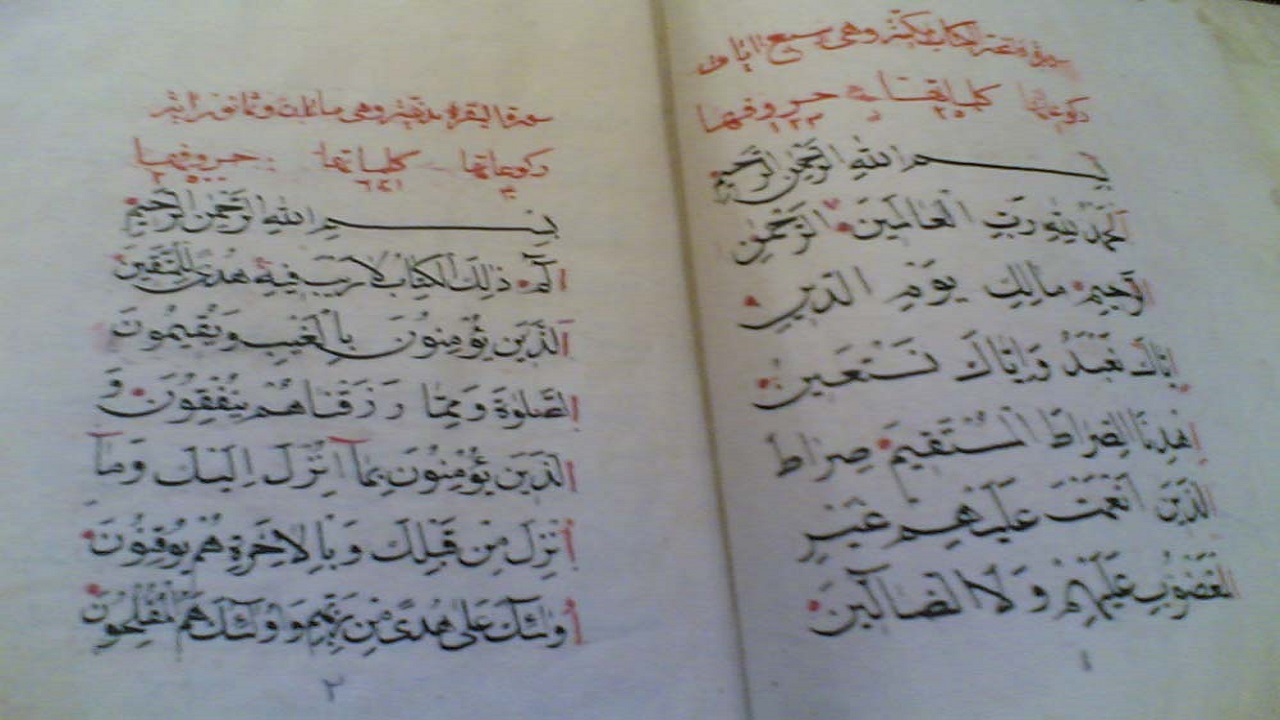 سورة فاتحة الكتاب مكية وهى سبع ايات
ركوعاتها كلماتها حروفها
بسم الله الرَّحْمٰنِ الرَّحِيمِ
اَلْحَمْدُ لِلّٰهِ رَبِّ الْعَالَمِينَ الرَّحْمٰنِ
الرَّحِيمِ مَالِكِ يَوْمِ الدِّينِ
اِيَّاكَ نَعْبُدُ وَاِيَّاكَ نَسْتَعِينُ
اِهْدِنَا الصِّرَاطَ الْمُسْتَقِيمَ صِرَاطَ
الَّذِينَ اَنْعَمْتَ عَلَيْهِمْ غَيْرِ
الْمَغْضُوبِ عَلَيْهِمْ وَلَا الضَّالِّينَ
١
سورة البقرة مدنية وهى مائتان وثمانون اية
ركوعاتها كلماتها ٦١٢١ حروفها
بِسْمِ اللهِ الرَّحْمٰنِ الرَّحِيمِ
الٓمٓ ذٰلِكَ الْكِتَابُ لَارَيْبَ فِيهِ هُدًى لِلْمُتَّقِينَ
اَلَّذِينَ يُؤْمِنُونَ بِالْغَيْبِ وَيُقِيمُونَ
الصَّلٰوةَ وَمِمَّا رَزَقْنَاهُمْ يُنْفِقُونَ وَ
الَّذِينَ يُؤْمِنُونَ بِمَآ اُنْزِلَ اِلَيْكَ وَمَآ
اُنْزِلَ مِنْ قَبْلِكَ وَبِالْاٰخِرَةِ هُمْ يُوقِنُونَ
اُولٰئِكَ عَلٰى هُدًى مِنْ رَبِّهِمْ وَاُولٰئِكَ هُمُ الْمُفْلِحُونَ
٢